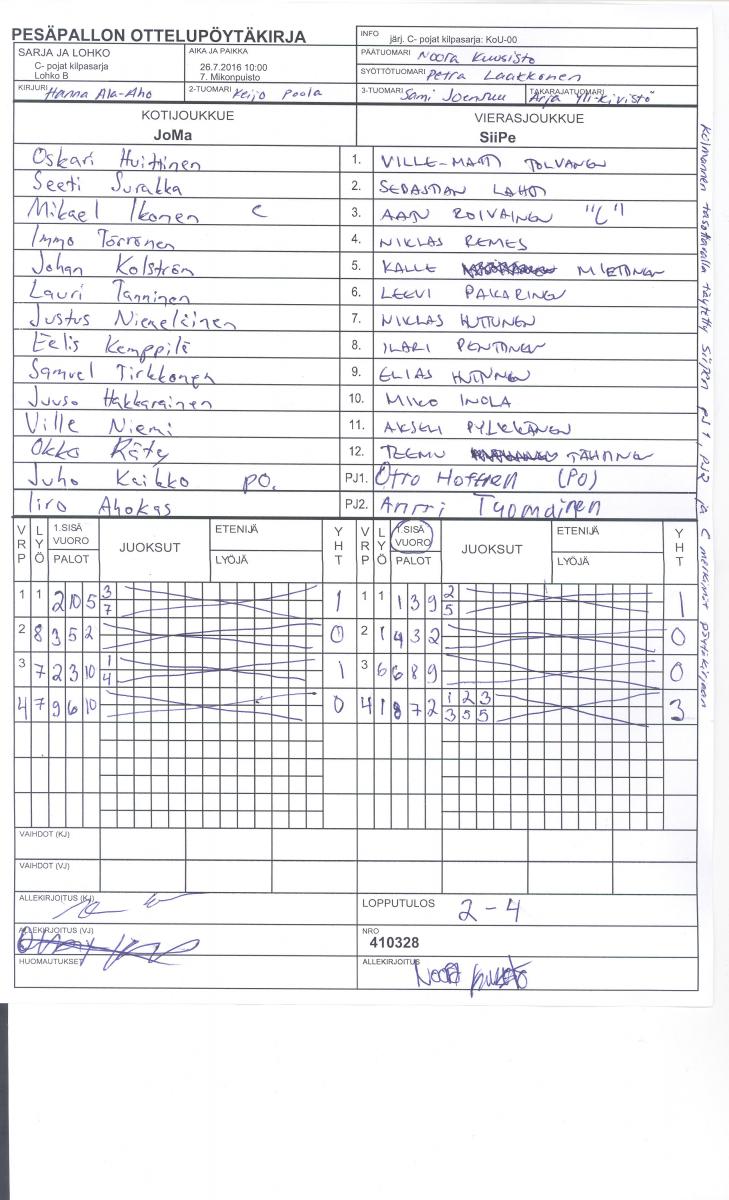 PESÄPALLON OTTELUPÖYTÄKIRJA
INFO järj. C- pojat kilpasarja: KoU-00
SARJA JA LOHKO
C- pojat kilpasarja
Lohko B
AIKA JA PAIKKA
26.7.2016 10:00
7. Mikonpuisto
PÄÄTUOMARI Noora Kuusisto
SYÖTTÖTUOMARI Petra Laakkonen
KIRJURI Hanna Ala-Aho
2-TUOMARI Keijo Poola
3-TUOMARI Sami Joensuu
TAKARAJATUOMARI Arja Yli-Kivistö
KOTIJOUKKUE
JoMa
VIERASJOUKKUE
SiiPe
Oskari Huittinen 1. VILLE-MATTI TOLVANEN
Seeti Surakka 2. SEBASTIAN LAHTI
Mikael Ikonen C 3. ROIVAINEN "C"
Immo Törrönen 4. NIKLAS REMES
Johan Kolström 5. KALLE MIETTINEN
Lauri Tanninen 6. LEEVI PAKARINEN
Justus Niemeläinen 7. NIKLAS HUTTUNEN
Eelis Kemppilä 8. ILARI PENTTINEN
Samuel Tirkkonen 9. ELIAS
Juuso Hakkarainen 10. MIKO INOLA
Ville Niemi 11. AKSELI PYLKKÄNEN
Okko Räty 12. TEEMU TÄHTINEN
Juho Kaikko PO. PJ1. Otto Hoffren (PO)
Iiro Ahokas PJ2. Anrri Tuomainen
VRP LYÖ 1.SISÄ VUORO PALOT JUOKSUT ETENIJÄ LYÖJÄ YHT VRP LYÖ 1.SISÄ VUORO PALOT JUOKSUT ETENIJÄ LYÖJÄ YHT
1 1 2 10 5 3 1 1 1 1 3 9 2 1
7 5
2 8 3 5 2 0 2 1 4 3 2 0
3 7 2 3 10 1 1 3 6 6 8 9 0
4
4 7 9 6 10 0 4 1 8 7 2 1 2 3 3
3 5 5
VAIHDOT (KJ)
VAIHDOT (VJ)
ALLEKIRJOITUS (KJ)
LOPPUTULOS 2-4
ALLEKIRJOITUS (VJ)
NRO
410328
HUOMAUTUKSET
ALLEKIRJOITUS Noora Kuusisto
Kolmannen tasottavalla täytetty Siipen PJ1, PJ2 ja C merkinnät pöytäkirjaan